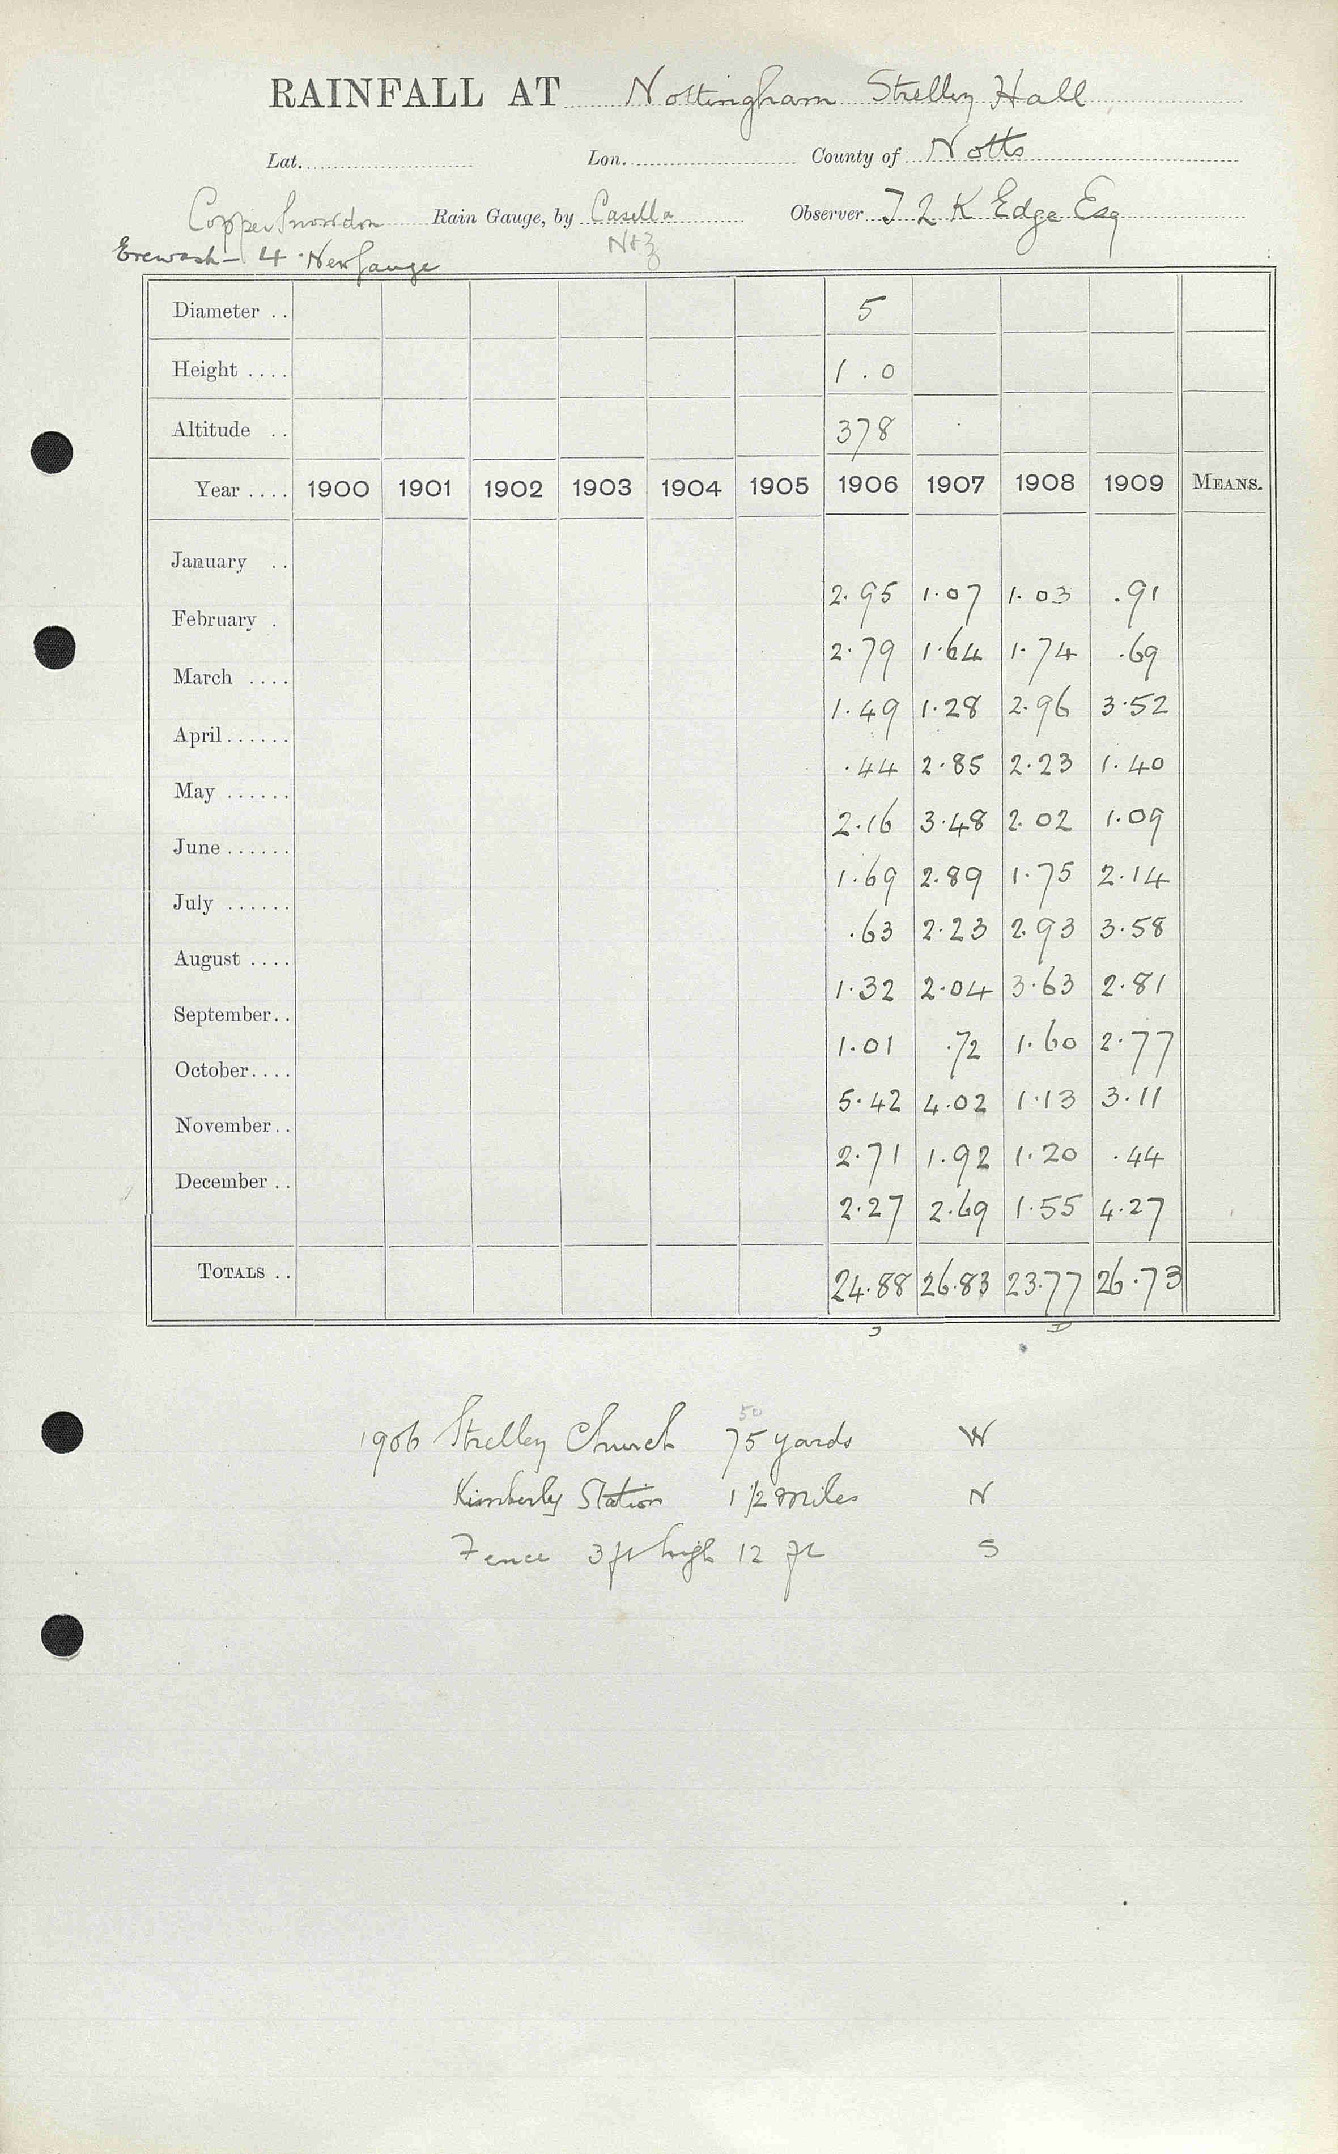 RAINFALL AT Nottingham Strelley Hall
Lat. Lon. County of Notts
Copper Snowdon Rain Gauge, by Casella Observer J L K Edge Esq
Erewash - 4 . New Gauge
Diameter .. 5
Height .... 1 . 0
Altitude .. 378
Year .... 1900 1901 1902 1903 1904 1905 1906 1907 1908 1909 MEANS.
January .. 2.95 1.07 1.03 .91
February . 2.79 1.64 1.74 .69
March .... 1.49 1.28 2.96 3.52
April...... .44 2.85 2.23 1.40
May ...... 2.16 3.48 2.02 1.09
June...... 1.69 2.89 1.75 2.14
July ...... .63 2.23 2.93 3.58
August .... 1.32 2.04 3.63 2.81
September.. 1.01 .72 1.60 2.77
October.... 5.42 4.02 1.13 3.11
November.. 2.71 1.92 1.20 .44
December .. 2.27 2.69 1.55 4.27
TOTALS .. 24.88 26.83 23.77 26.73
50
1906 Strelley Church 75 yards W
Kimberly Station 1 1/2 miles N
Fence 3 ft high 12 ft S